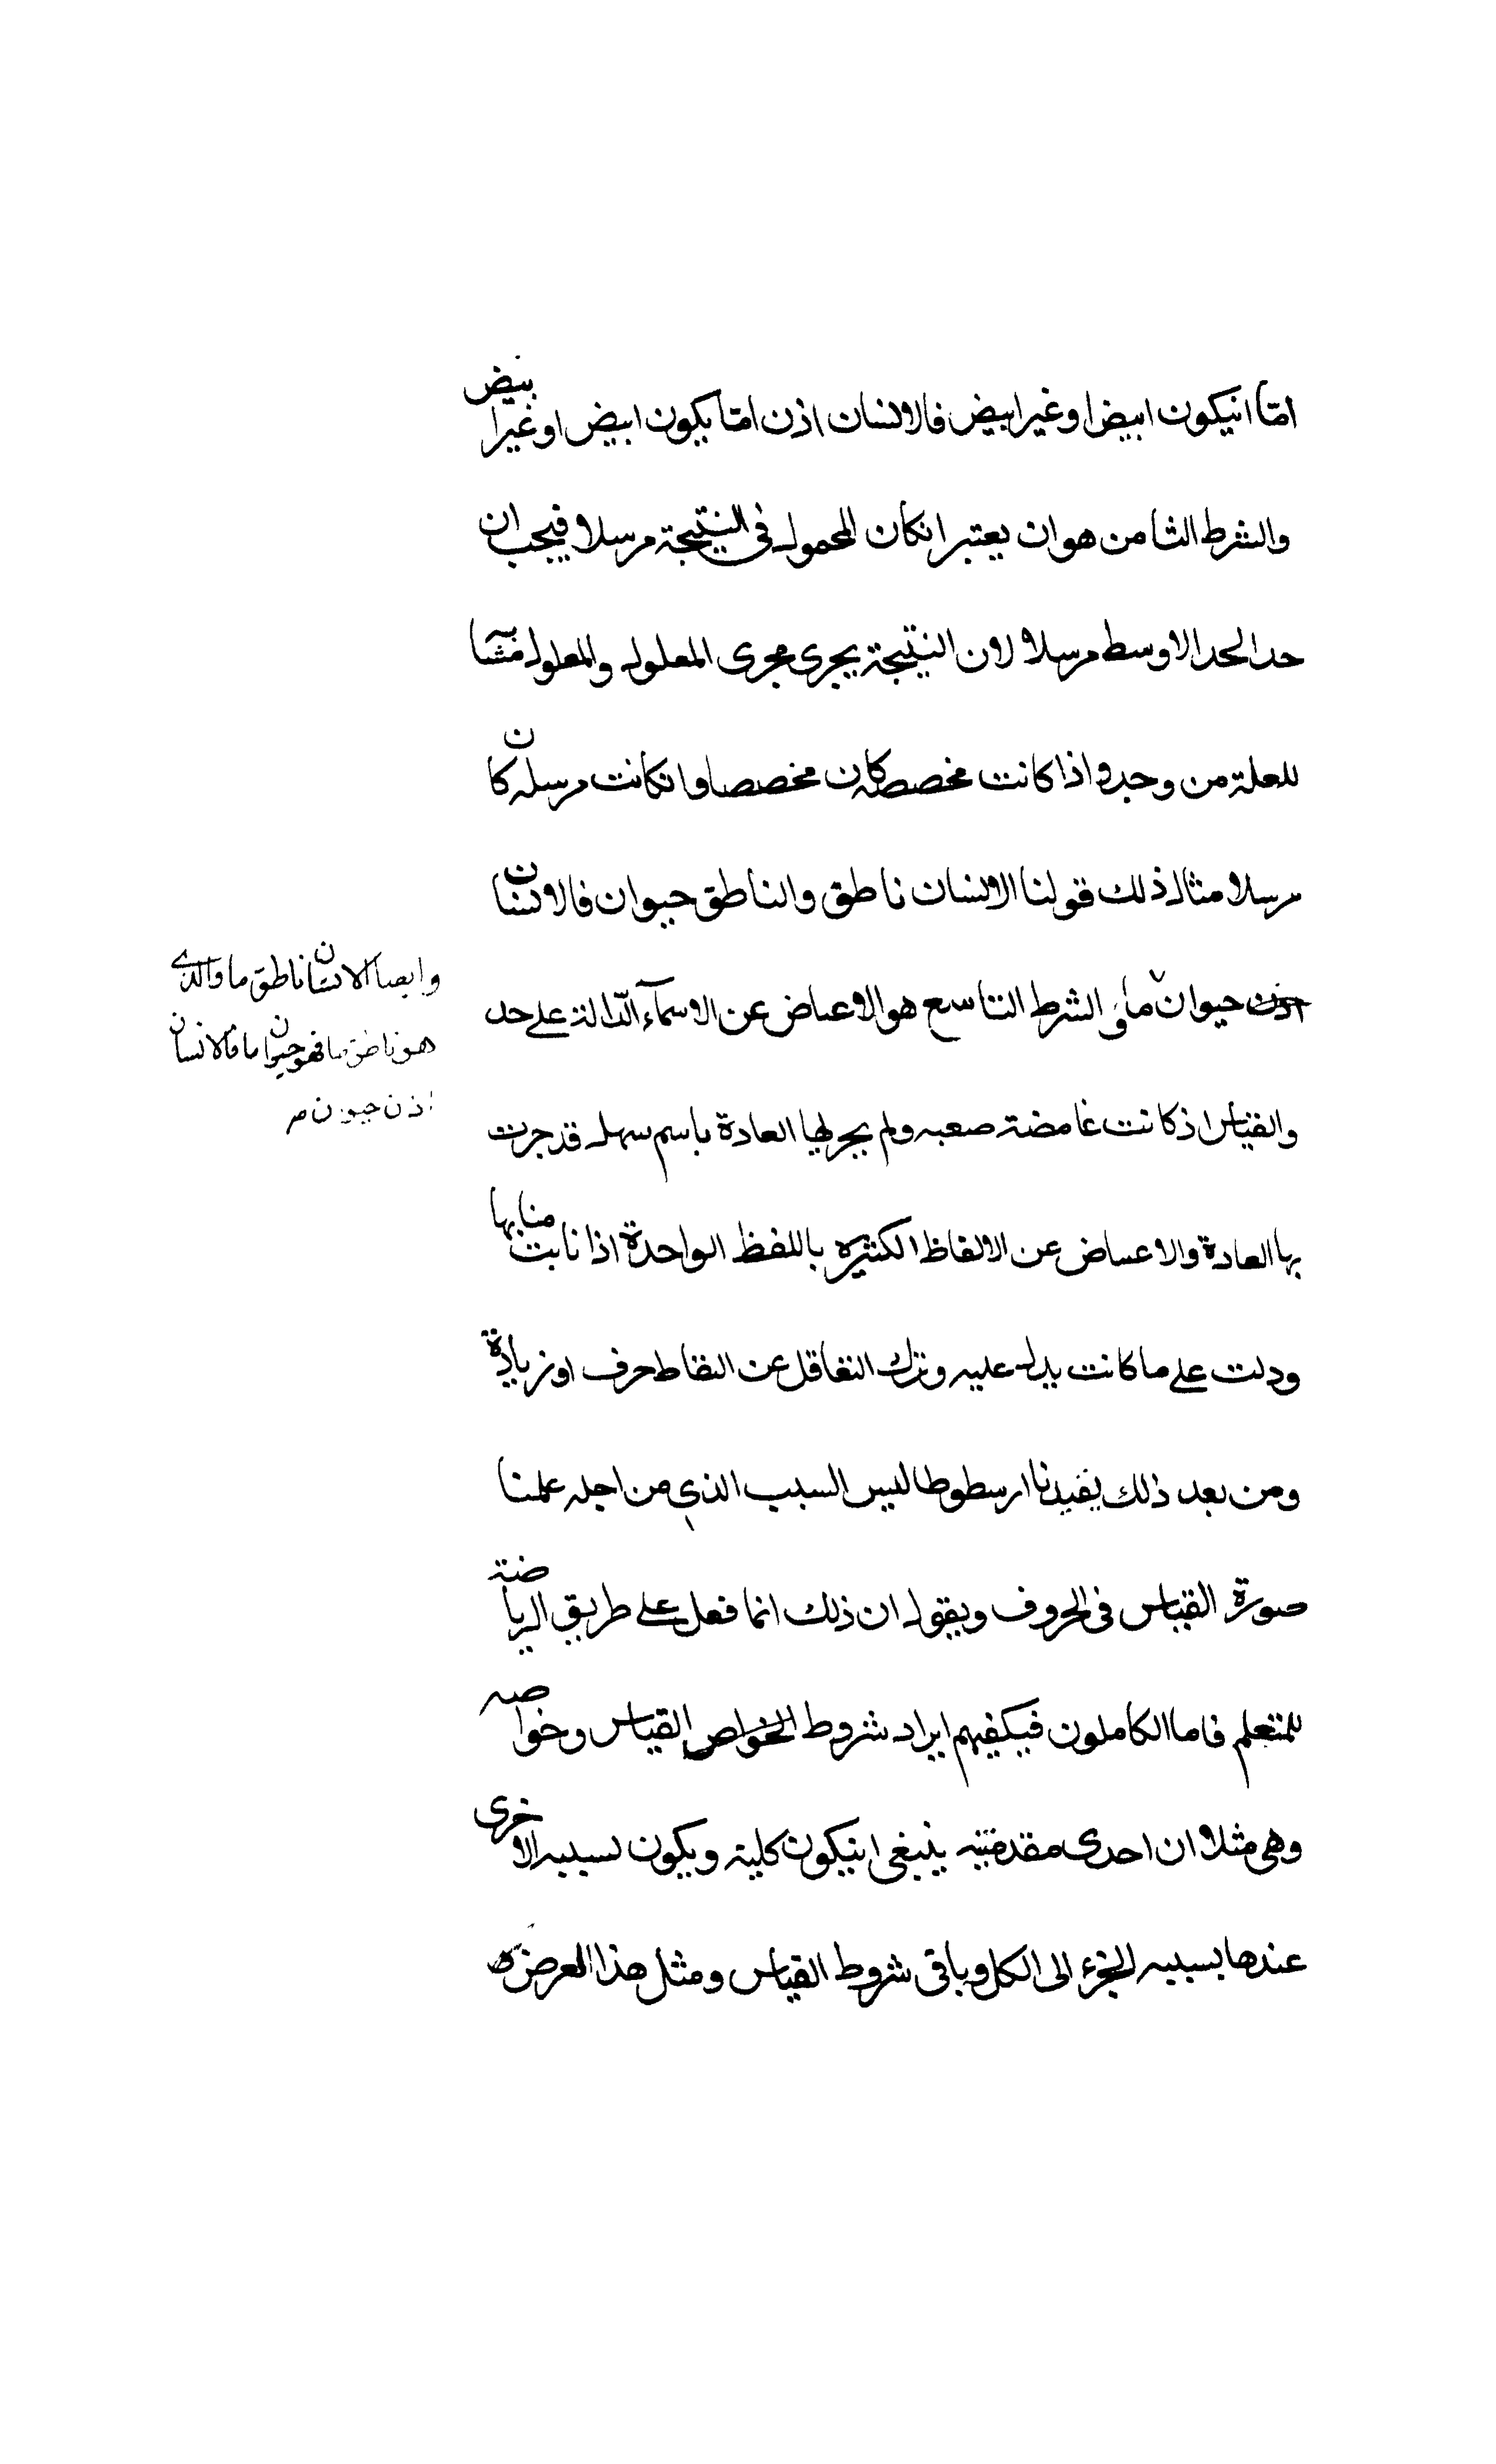 امّا انيكون ابيض او غير ابيض فالانسان اذن امّا يكون ابيض او غير ابيض
والشرط الثامن هو ان يعتبر انكان المحمول فى النتيجة مرسلا فيجب ان
حد الحد الاوسط مرسلا لان النتيجة يجرى مجرى المعلول والمعلول
للعلة من وجه واذا كانت مخصصه كان مخصصا وانكانت مرسله كان
مرسلا مثال ذلك قولنا الانسان ناطق والناطق حيوان فالانسان
اذن حيوان الشرط التاسع هو الاعياض عن الاسمآء الدّالة على حد
والقياس اذ كانت غامضة صعبه ولم يجر لها العادة باسم سهل قد جرت
بها العادة والاعياض عن الالفاظ الكثيره باللفظ الواحدة اذا نابت منابها
ودلت على ما كانت يدل عليه وترك التغافل عن التقاط حرف او زيادة
ومن بعد ذلك يفيدنا ارسطوطاليس السبب الذى من اجله علمنا
صورة القياس فى الحروف ويقول ان ذلك انما فعل على طريق الرياضة
للمتعلم فاما الكاملون فيكفيهم ايراد شروط القياس وخواصه
وهى مثلا ان احدى مقدمتيه ينبغى انيكون كلية ويكون نسبيه الاخرى
عندها بسبيه الجزء الى الكل وباقى شروط القياس ومثل هذا العرض
وايضا الانسان ناطق ما والذى
هو ناطق ما فهو حيوان ما فالانسان
اذن حيوان